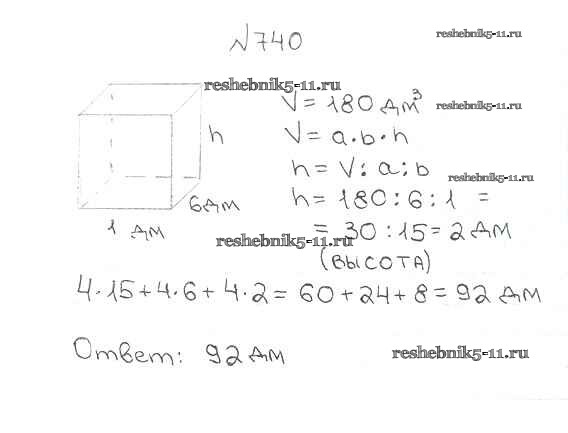 №740
reshebnik5-11.ru
reshebnik5-11.ru
V = 180 дм³
reshebnik5-11.ru
h
V = a·b·h
h = V : a : b
reshebnik5-11.ru
h = 180 : 6 : 1 =
6дм
1 дм
= 30 : 15 = 2 дм
reshebnik5-11.ru
(высота)
4·15+4·6+4·2= 60+24+8=92 дм
Ответ: 92 дм
reshebnik5-11.ru